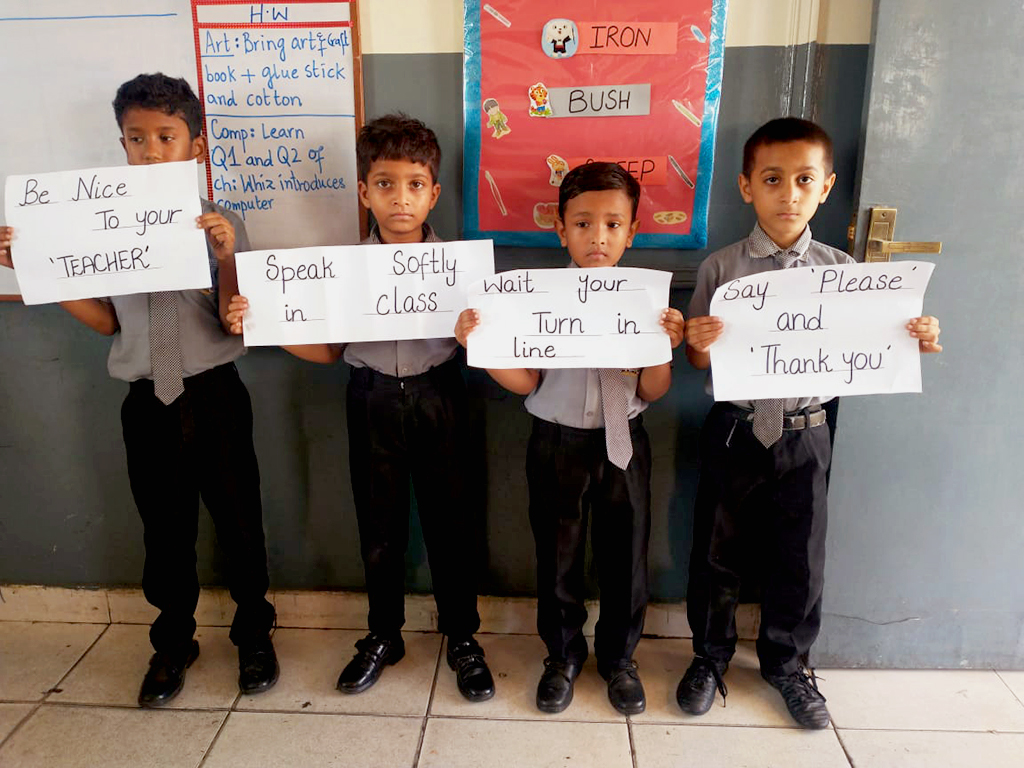 H.W
Art: Bring art & Craft
book + glue stick
and cotton
Comp: Learn
Q1 and Q2 of
ch: Whiz introduces
computer
IRON
BUSH
Be Nice
To your
'TEACHER'
Speak Softly
in class
Wait your
Turn in
line
Say 'Please'
and
'Thank you'